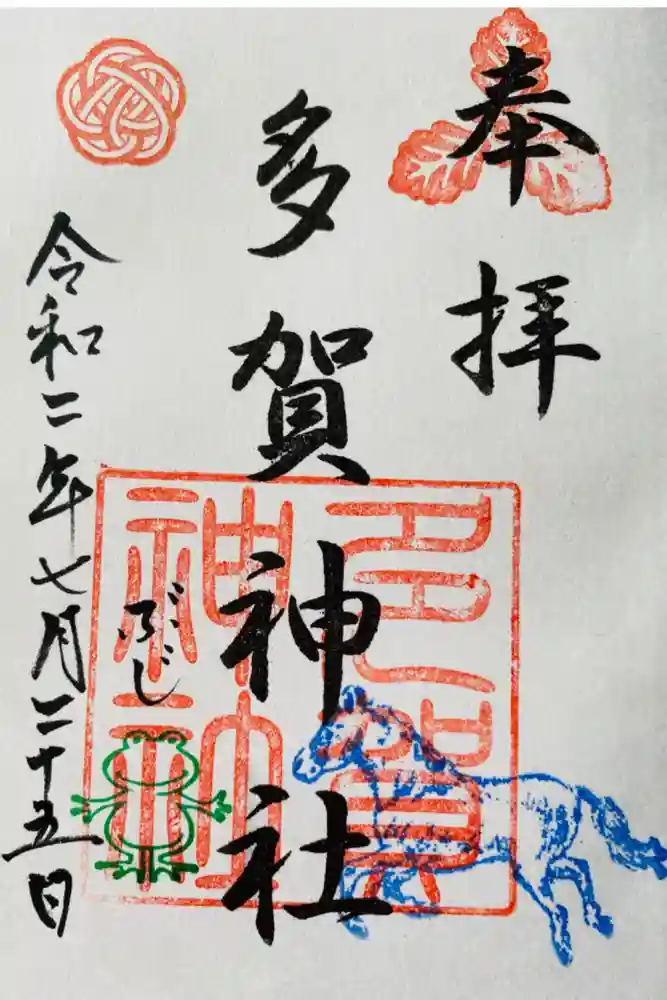 奉拝
多賀神社
多賀神社
ぶじ
令和二年七月二十五日